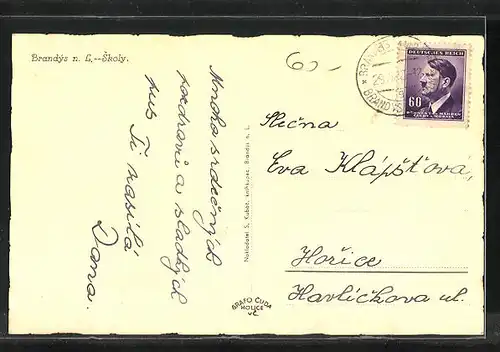 Brandýs n. L. - Školy.
Mnoho srdečných
pozdravů a sladkých
pus Ti zasílá
Dana.
Nakladatel S. Kubát, knihkupec, Brandýs n. L.
GRAFO ČUDA
HOLICE
DEUTSCHES REICH
60
Slečna
Eva Klápšťová,
Hořice
Havlíčkova ul.